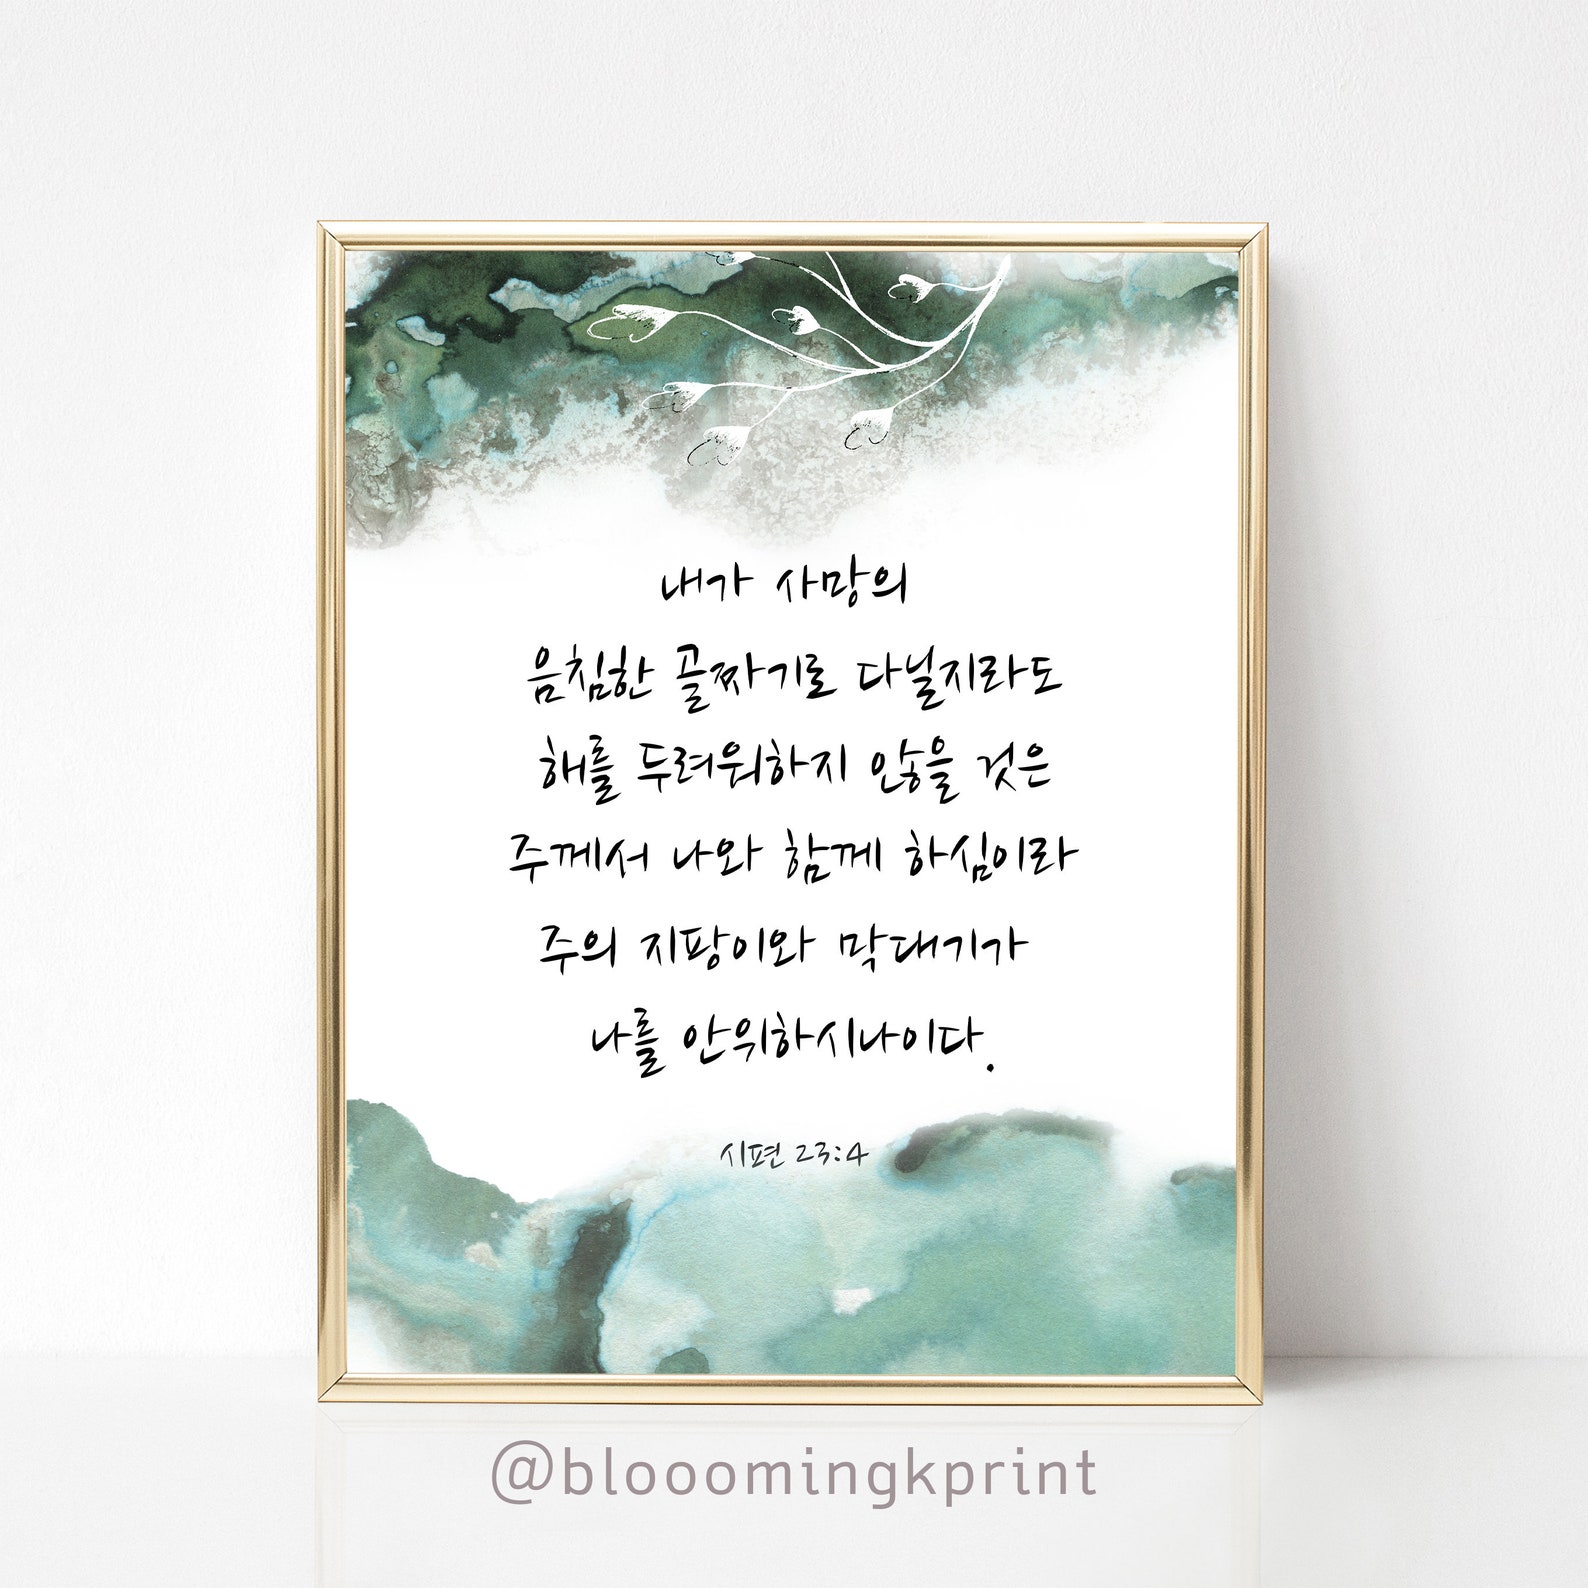 내가 사망의
음침한 골짜기로 다닐지라도
해를 두려워하지 않을 것은
주께서 나와 함께 하심이라
주의 지팡이와 막대기가
나를 안위하시나이다.
시편 23:4
@blooomingkprint